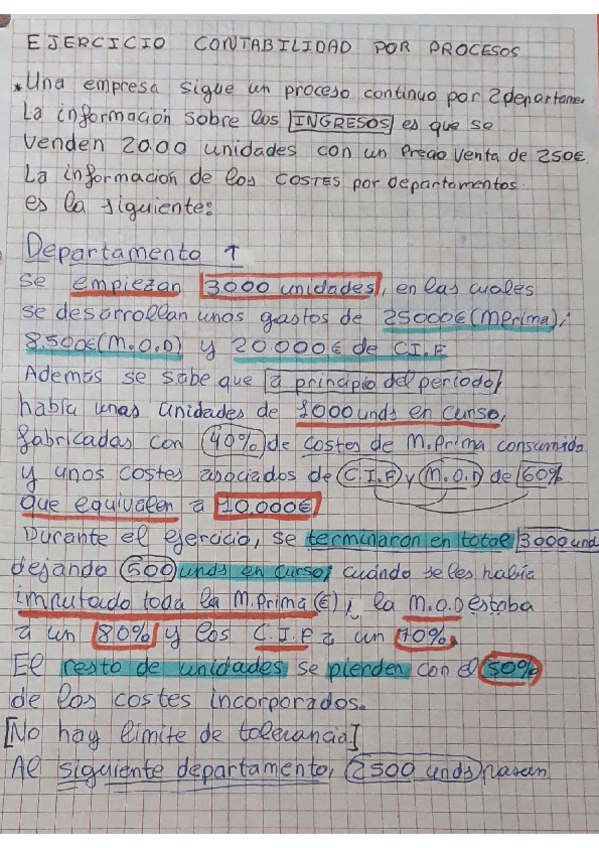 EJERCICIO CONTABILIDAD POR PROCESOS
* Una empresa sigue un proceso continuo por 2 departame.
La información sobre los INGRESOS es que se
venden 2000 unidades con un Precio Venta de 250€.
La información de los COSTES por departamentos
es la siguiente:
Departamento 1
se empiezan 3000 unidades, en las cuales
se desarrollan unos gastos de 25000€ (MPrima);
8.500€ (M.O.D) y 20.000€ de C.I.F
Además se sabe que a principio del periodo,
había unas unidades de 1000 unds en curso,
fabricadas con 40% de costes de M.Prima consumida
y unos costes asociados de C.I.F y M.O.D de 60%
que equivalen a 10.000€
Durante el ejercicio, se terminaron en total 3000 und
dejando 500 unds en curso; cuándo se les había
imputado toda la M.Prima (€); la M.O.D estaba
a un 80% y los C.I.F a un 70%.
El resto de unidades se pierden con el 50%
de los costes incorporados.
[No hay límite de tolerancia]
Al siguiente departamento, 2500 unds pasan